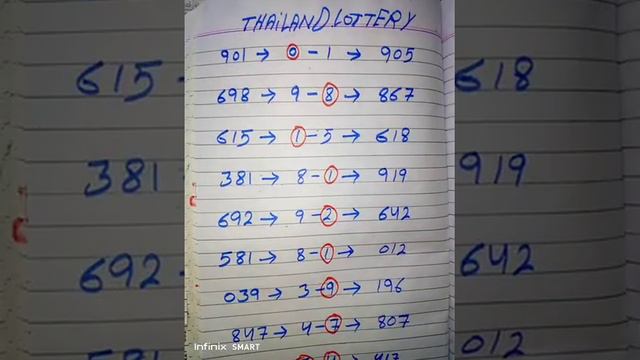 THAILAND LOTTERY
901 → 0 - 1 → 905
698 → 9 - 8 → 867
615 → 1 - 5 → 618
381 → 8 - 1 → 919
692 → 9 - 2 → 642
581 → 8 - 1 → 012
039 → 3 - 9 → 196
847 → 4 - 7 → 807
Infinix SMART
615
618
381
919
692
642
012